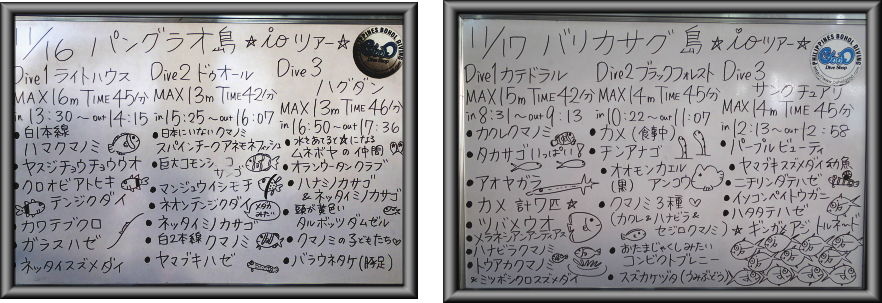 11/16 パングラオ島 ☆ioツアー☆
PHILIPPINES BOHOL DIVING
Dive Shop
Dive1 ライトハウス
MAX16m TIME45分
in 13:30～out 14:15
● 白1本線
ハマクマノミ
● ヤスジチョウチョウウオ
● クロオビアトヒキ
テンジクダイ
● カワテブクロ
● ガラスハゼ
● ネッタイスズメダイ
Dive2 ドゥオール
MAX13m TIME42分
in 15:25～out 16:07
● 日本にいないクマノミ
スパインチークアネモネフィッシュ
● 巨大コモンシコロサンゴ
● マンジュウイシモチ
● ネオンテンジクダイ
メタカみたい
● ネッタイミノカサゴ
● 白2本線 クマノミ
● ヤマブキハゼ
Dive3
ハグダン
MAX13m TIME46分
in 16:50～out 17:36
● 水をあてると☆になる
ムネボヤの仲間
● オランウータンクラブ
● ハナミノカサゴ
&ネッタイミノカサゴ
● 頭が黄色い
タルボッツダムゼル
● クマノミの子どもたち♡
● バラウネタケ(豚足)
11/17 バリカサグ島 ☆ioツアー☆
PHILIPPINES BOHOL DIVING
Dive Shop
Dive1 カテドラル
MAX15m TIME42分
in 8:31～out 9:13
● カクレクマノミ
● タカサゴいっぱい!
● アオヤガラ
● カメ 計7匹 ☆
● ツバメウオ
● メラネシアンアンティアス
● ハナビラクマノミ
● トウアカクマノミ
& ミツボシクロスズメダイ
Dive2 ブラックフォレスト
MAX14m TIME45分
in 10:22～out 11:07
● カメ(食事中)
● チンアナゴ
● オオモンカエル
(黒) アンコウ
● クマノミ3種♡
(カクレ&ハナビラ&
セジロクマノミ)
● おたまじゃくしみたい
コンビクトブレニー
● スズカケヅタ(うみぶどう)
Dive3
サンクチュアリ
MAX14m TIME45分
in 12:13～out 12:58
● パープルビューティ
● ヤマブキスズメダイ幼魚
● ニチリンダテハゼ
● イソコンペイトウガニ
● ハタタテハゼ
☆ ギンガメアジ トルネード